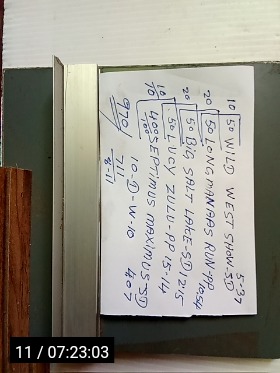 10
50 WILD WEST SHOW-SD 5-37
20
50 LONGMANAAS RUN-PP 1054
20
50 BIG SALT LAKE-SD 12.15
50 LUCY ZULU-PP 15-14
10
70
400 SEPTIMUS MAXIMUS SD 407
100
970
10-D-W-10
711
11 / 07:23:03